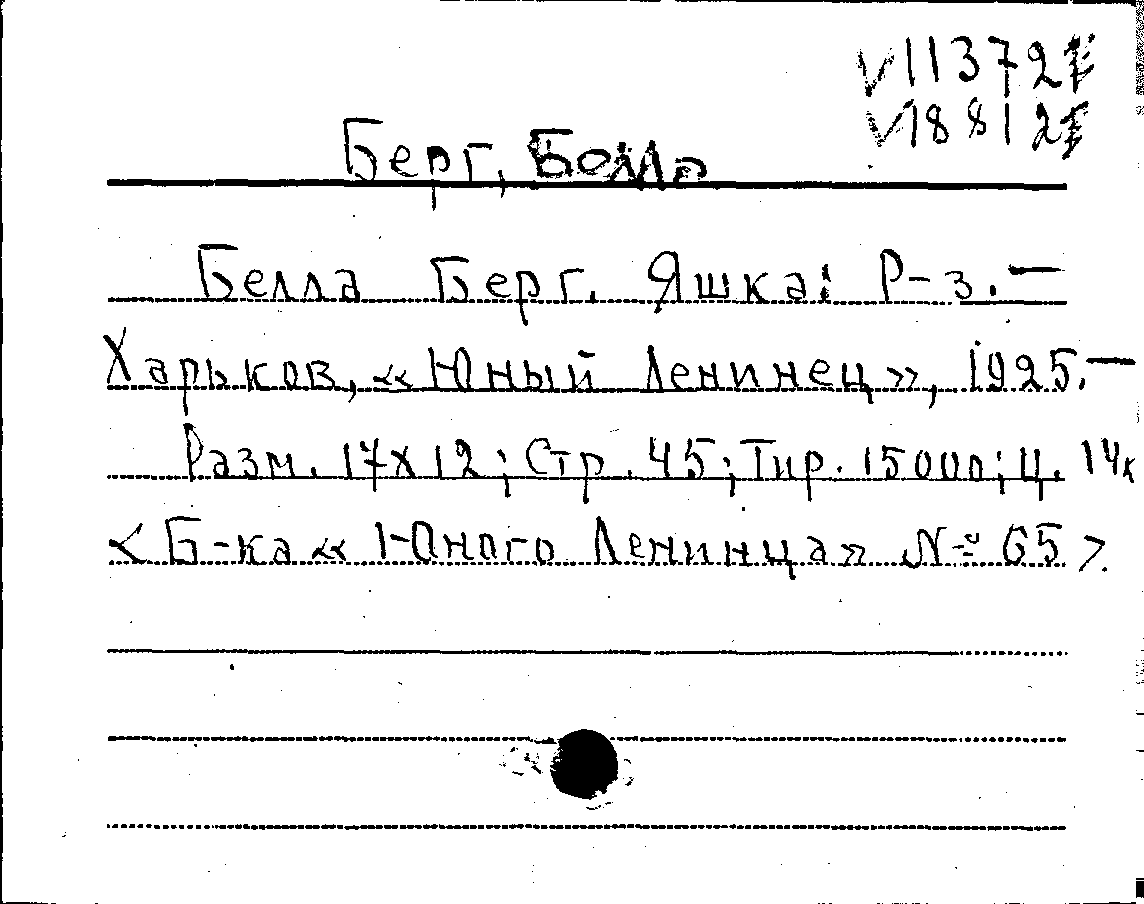 V11372
V18812
Берг, Белла
Белла Берг. Яшка: Р-з. —
Харьков, «Юный Ленинец», 1925. —
Разм. 17х12; Стр. 45; Тир. 15000; Ц. 14к
<Б-ка «Юного Ленинца» № 65>.